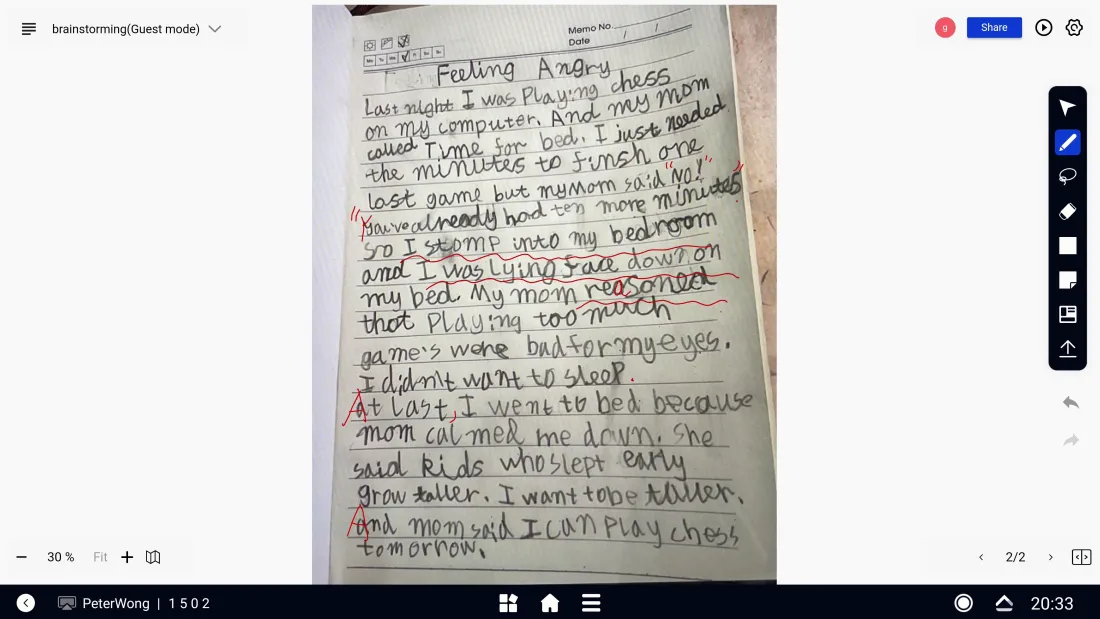 brainstorming(Guest mode)
g
Share
Memo No.
Date / /
Mo Tu We Th Fr Sa Su
Feeling Angry
Last night I was Playing chess
on my computer. And my mom
called Time for bed. I just needed
the minutes to finsh one
last game but my Mom said "NO!"
"You've already had ten more minutes"
so I stomp into my bedroom
and I was lying face down on
my bed. My mom reasoned
that Playing too much
game's were bad for my eyes.
I didn't want to sleep.
At last, I went to bed because
mom calmed me down. She
said kids who slept early
grow taller. I want to be taller.
And mom said I can Play chess
tomorrow.
30 %
Fit
2/2
PeterWong | 1 5 0 2
20:33